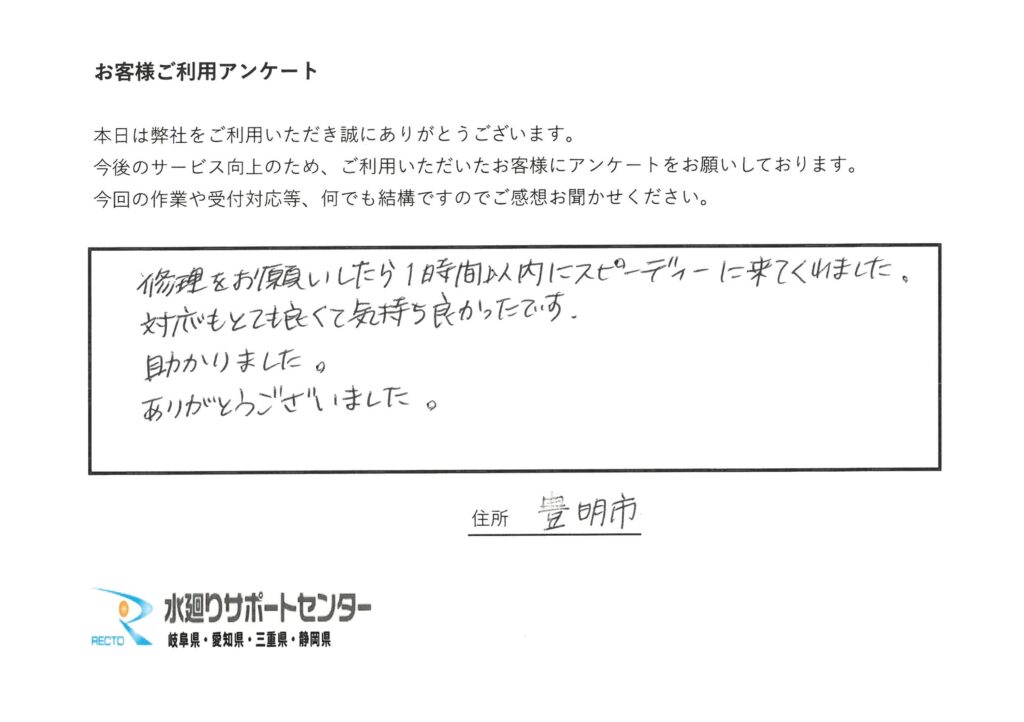 お客様ご利用アンケート
本日は弊社をご利用いただき誠にありがとうございます。
今後のサービス向上のため、ご利用いただいたお客様にアンケートをお願いしております。
今回の作業や受付対応等、何でも結構ですのでご感想お聞かせください。
修理をお願いしたら1時間以内にスピーディーに来てくれました。
対応もとても良くて気持ち良かったです.
助かりました。
ありがとうございました。
住所 豊明市
RECTO 水廻りサポートセンター
岐阜県・愛知県・三重県・静岡県